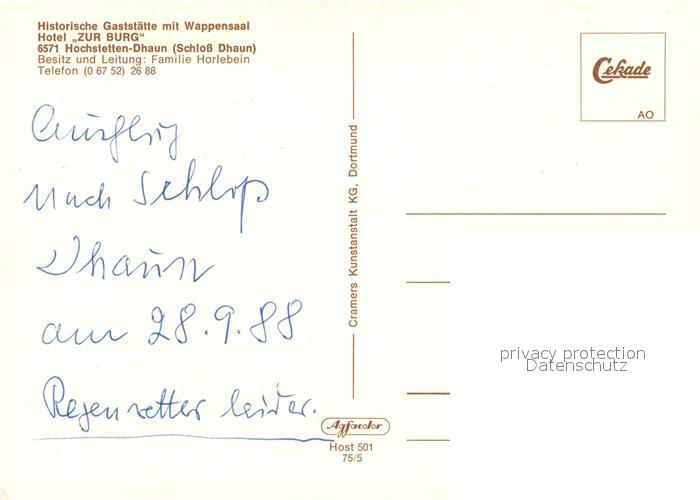 Historische Gaststätte mit Wappensaal
Hotel „ZUR BURG“
6571 Hochstetten-Dhaun (Schloß Dhaun)
Besitz und Leitung: Familie Horlebein
Telefon (0 67 52) 26 88
Ausflug
nach Schloß
Dhaun
am 28.9.88
Regenwetter leider.
Cramers Kunstanstalt KG, Dortmund
Cekade
AO
privacy protection
Datenschutz
Agfacolor
Host 501
75/5